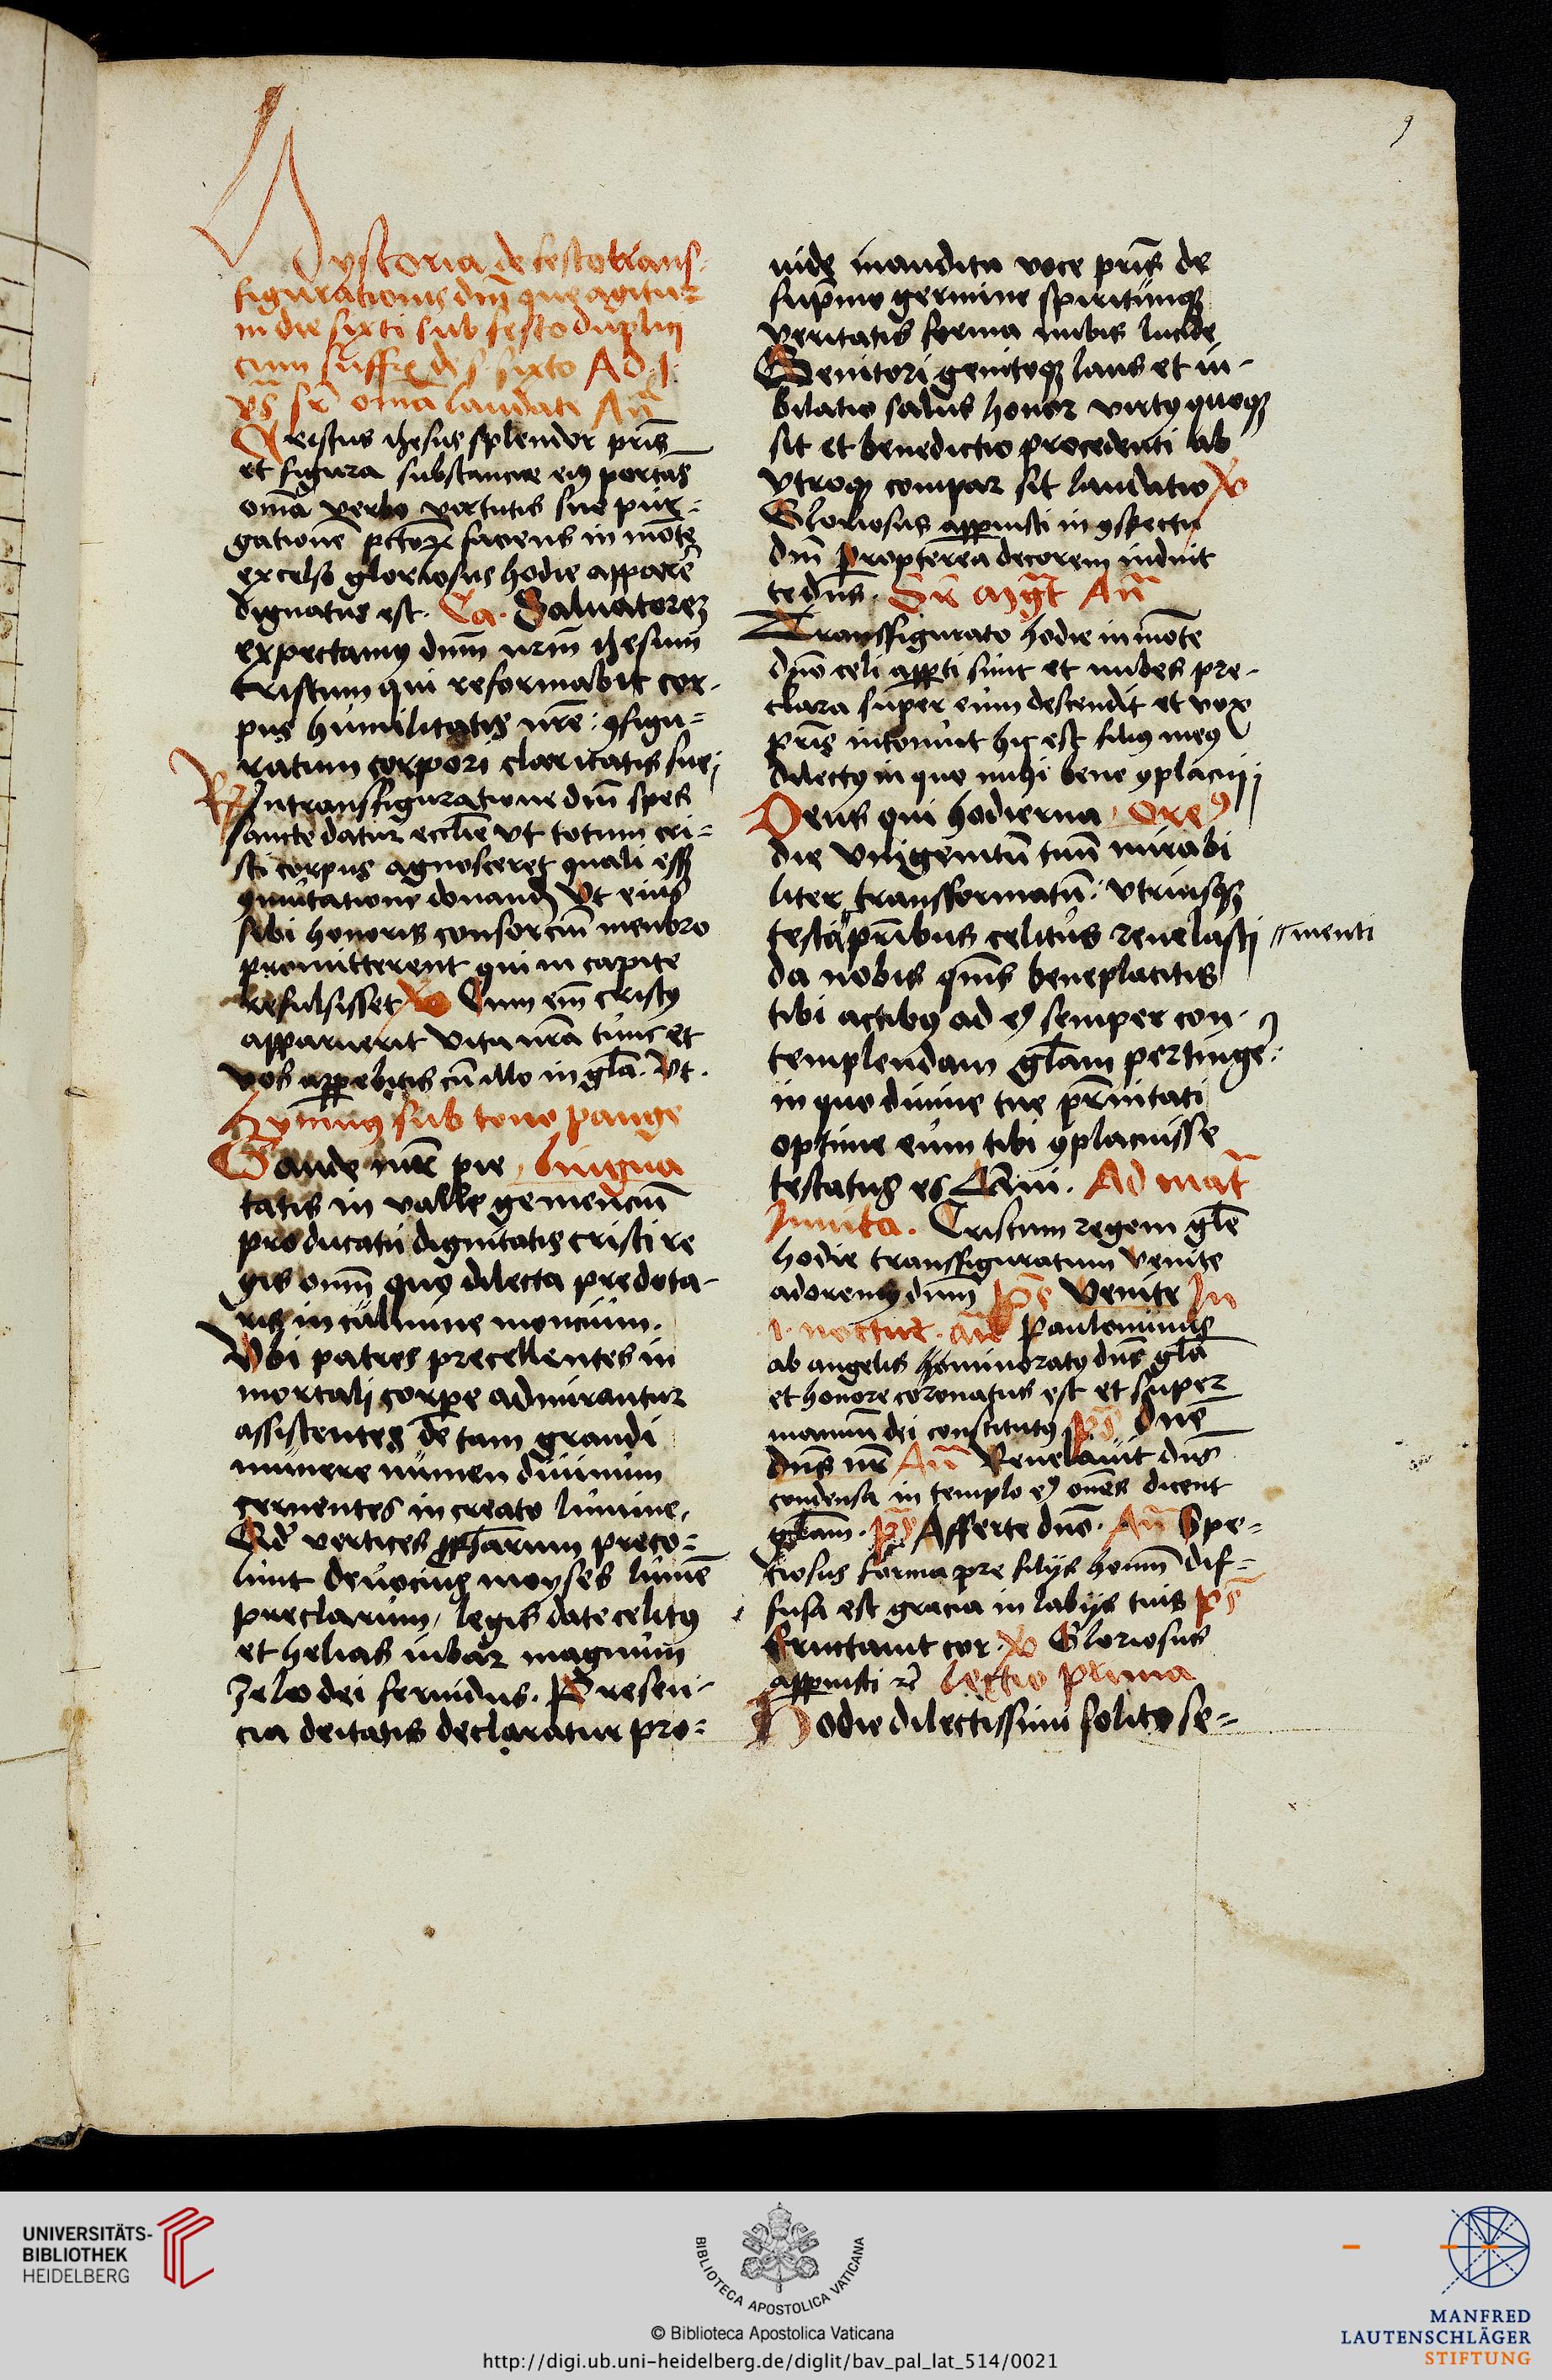 9
Hystoria de festo trans-
figurationis dnī que agitur
in die sixti sub festo duplici
cum suffrag̃ de s. sixto Ad j.
vs̃ sr̃ oīa laudate An̄
Cristus ihesus splendor pr̄is
et figura substancie eiꝯ portās
om̄a verbo virtutis sue pur-
gationē pctōꝝ faciens in mōte
excelso gloriosus hodie apparē
dignatus est. Ca. Saluatoreꝫ
expectamꝯ dnm̄ nr̄m ihesum
cristum qui reformabit cor-
pus humilitatis nr̄e: ꝯfigu-
ratum corpori claritatis sue
R̃ In transfiguratione dnī spes
sancte datur eccl̄ie vt totum cri-
sti corpus agnosceret quali esset
ꝯmutatione donand Vt eius
sibi honoris consorciū menbro
promitterent qui in capite
refulsisset ℣ Cum em̄ cristꝯ
apparuerit vita nr̄a tunc et
vos apꝑebitis cū illo in gl̄a. Vt.
Hymnꝯ sub tono pange
Gaude mr̄ pie lingua
tatis in valle gemenciū
pro ducatu dignitatis cristi re
gis omī quo dilecta predota-
ris in culmine moncium.
Vbi patres precellentes in
mortali corpe admirantur
assistentes de tam grandi
munere numen diuinum
cernentes in creato lumine.
Ad vertices ꝓph̄arum preco-
lunt deuocius moyses lumē
preclarum, legis date celitꝯ
et helias iubar magnum
zelo dei feruidus. Presen-
cia deitatis declaratur pro-
uide inaudita voce pr̄is de
sup̄mo germine spiritusqꝫ
veritatis forma nubis lucide
Genitori genitoqꝫ laus et iu-
bilatio salus honor virtꝯ quoqꝫ
sit et benedictio procedenti ab
vtroqꝫ compar sit laudatio ℣
Gloriosus apꝑuisti in ꝯspectu
dnī Propterea decorem induit
te dn̄s. Sr̃ Mgt̃ An̄
Transfigurato hodie in mōte
dnō celi apꝑti sunt et nubes pre-
clara super eum descendit et vox
pr̄is intonuit hic est filiꝯ meꝯ
dilectꝯ in quo michi bene ꝯplacui
Deus qui hodierna Oreꝯ
die vnigenitū tuū mirabi
liter transformatū: vtriusqꝫ
testa pr̄ibus celitus reuelasti menti
da nobis qm̄s beneplacitis
tibi actibꝯ ad eꝯ semper con-
templendam gl̄am pertinge.
in quo diuine tue pr̄nitati
optime eum tibi ꝯplacuisse
testatus es Qui. Ad mat̃
Inuita. Cristum regem gl̄e
hodie transfiguratum venite
adoremꝯ dnm̄ ps̄ Venite In
1. noctur. an̄ Paulominus
ab angelis hominoratꝯ dn̄s gl̄a
et honore coronatus est et super
manuū dei constitutꝯ ps̄ Dn̄e
dn̄s nr̄ An̄ Reuelauit dn̄s
condensa in templo eꝯ om̄es dicent
gl̄am. ps̄ Afferte dnō. An̄ Spe-
ciosus forma pre filijs homī dif-
fusa est gracia in labijs tuis ps̄
Eructauit cor. ℣ Gloriosus
apꝑuisti rc̄ lectio prima
Hodie dilectissimi solito se-
UNIVERSITÄTS-
BIBLIOTHEK
HEIDELBERG
BIBLIOTECA APOSTOLICA VATICANA
© Biblioteca Apostolica Vaticana
http://digi.ub.uni-heidelberg.de/diglit/bav_pal_lat_514/0021
MANFRED
LAUTENSCHLÄGER
STIFTUNG